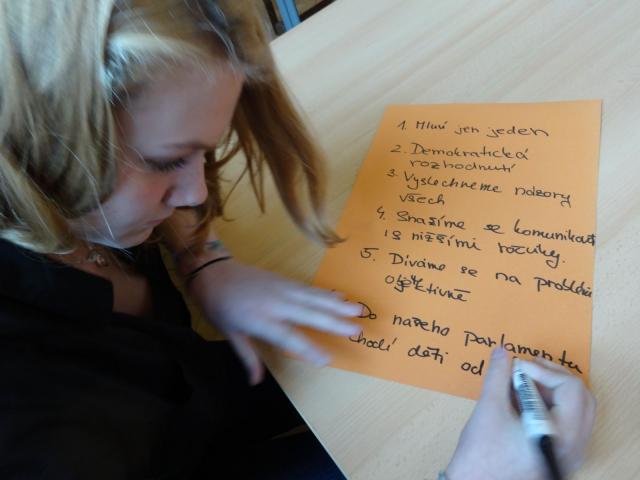 1. Mluví jen jeden
2. Demokratická
rozhodnutí
3. Vyslechneme názory
všech
4. Snažíme se komunikovat
i s nižšími ročníky.
5. Díváme se na problém
objektivně
Do našeho parlamentu
chodí děti od